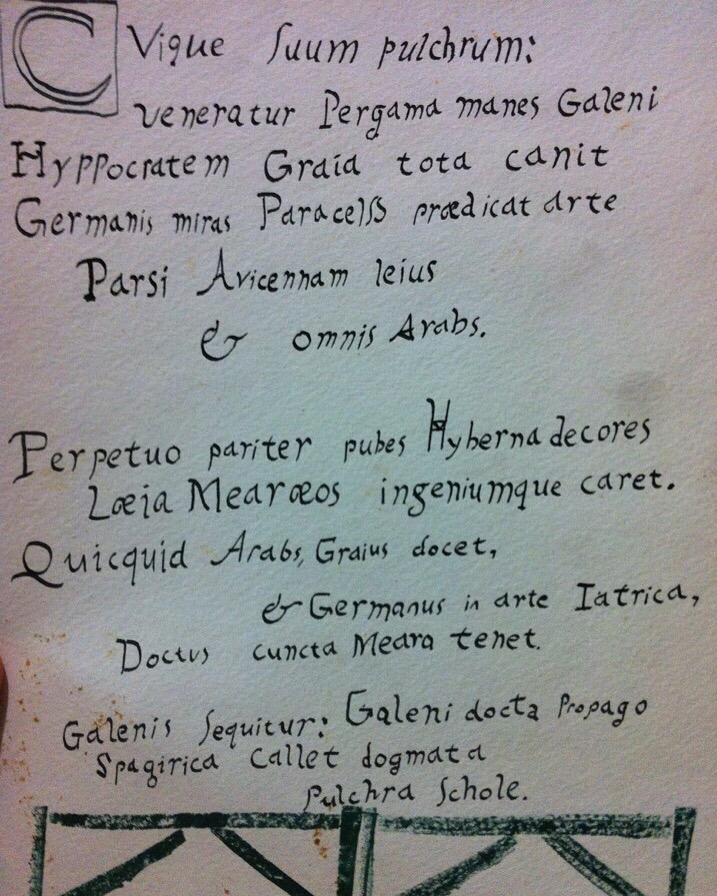 CVique suum pulchrum:
veneratur Pergama manes Galeni
Hyppocratem Graia tota canit
Germanis miras Paracelsꝰ prædicat arte
Parsi Avicennam leius
& omnis Arabs.
Perpetuo pariter pubes Hyberna decores
Læia Mearæos ingeniumque caret.
Quicquid Arabs, Graius docet,
& Germanus in arte Iatrica,
Doctus cuncta Meara tenet.
Galenis sequitur: Galeni docta Propago
Spagirica Callet dogmata
Pulchra Schole.